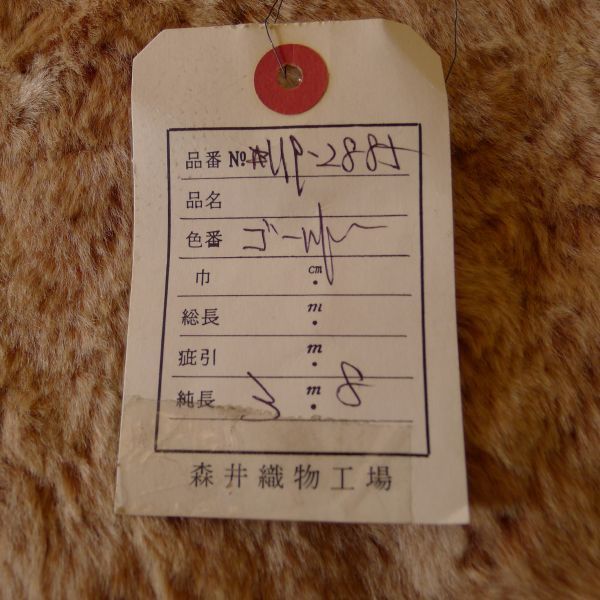 品番 № #UP-2885
品名
色番 ゴールド
巾 cm
総長 m
疵引 m
純長 3 m 8
森井織物工場